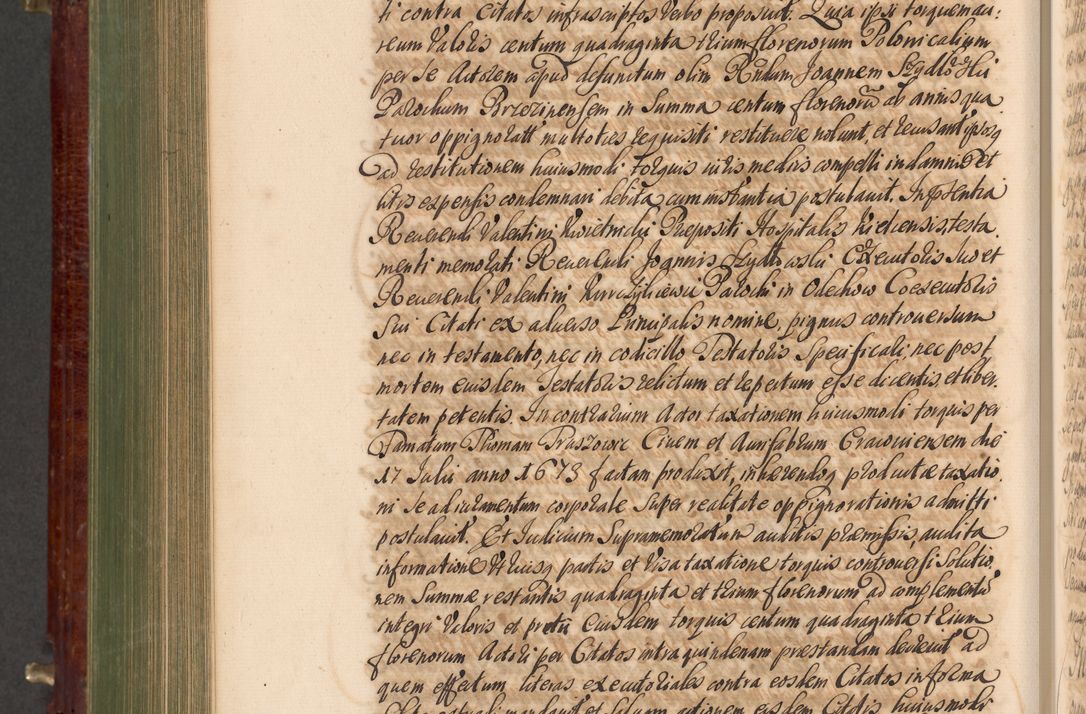 ti contra Citatos infrascriptos verbo proposuit. Quia ipsi torquem au:
reum valoris centum quadraginta trium florenorum Polonicalium
per se Actorem apud defunctum olim Rndum Joannem Szydlowski
Parochum Brzezinensem in Summa centum florenorũ ab annis qua
tuor oppignoratt multoties requisiti restituere nolunt, et recusant ipsosq
ad restitutionem huiusmodi torquis iuris mediis compelli in damnis et
litis expensis condemnari debita cum instantia postulauit. In pñtentia
Reuerendi Valentini Kwietnicki Prepositi Hospitalis Kielcensis, testa
menti memorati Reuerendi Joannis Szydlowski Executoris Suo et
Reuerendi Valentini Parochi in Odechow Coexecutoris
Sui Citati ex aduerso Principalis nomine, pignus controuersum
nec in testamento, nec in codicillo Testatoris Specificati, nec post
mortem eiusdem Testatoris relictum et repertum esse dicentis et liber
tatem petentis. In contrarium Actor taxationem huiusmodi torquis per
Famatum Thomam Praszowic Ciuem et Aurifabrum Cracouiensem die
17 Julii anno 1673 factam produxit, inhærendoq productæ taxatio
ni Se ad iuramentum corporale Super realitate oppignorationis admitti
postulauit. Et Iudicium Supramemoratum auditis præmissis, audita
informatione Vtriusq partis et visa taxatione torquis controuersi Solutio
nem Summæ restantis quadraginta et trium florenorum ad complementũ
integri Valoris et pretii eiusdem torquis centum quadraginta trium
florenorum Actori per Citatos intra quindenam præstandam decreuit ad
quem effectum literas executoriales contra eosdem Citatos in forma
mandauit et Saluam actionem eisdem Citatis huiusmodi